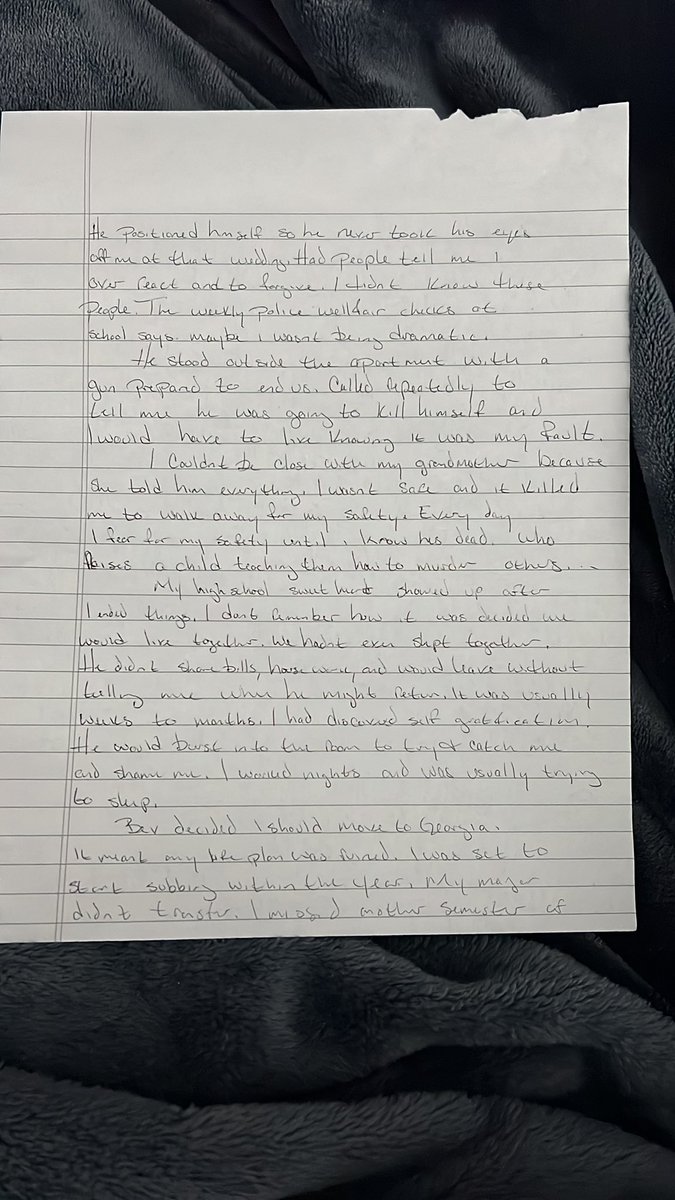 He Positioned himself so he never took his eyes
off me at that wedding. Had people tell me I
over react and to forgive. I didnt know these
people. The weekly police wellfair checks at
school says maybe I wasnt being dramatic.
He stood outside the apartment with a
gun prepared to end us. Called repeatedly to
tell me he was going to kill himself and
I would have to live knowing it was my fault.
I Couldnt be close with my grandmother because
she told him everything. I wasnt safe and it killed
me to walk away for my safety. Every day
I fear for my safety until i know his dead. Who
Raises a child teaching them how to murder others...
My high school sweet heart showed up after
I ended things. I dont remember how it was decided we
would live together. We hadnt even slept together.
He didnt share bills, house work, and would leave without
telling me when he might return. It was usually
weeks to months. I had discovered self gratification.
He would burst into the room to try & catch me
and shame me. I worked nights and was usually trying
to sleep.
Bev decided I should move to Georgia.
It meant my life plan was ruined. I was set to
start subbing within the year. My major
didnt transfer. I missed another semester of